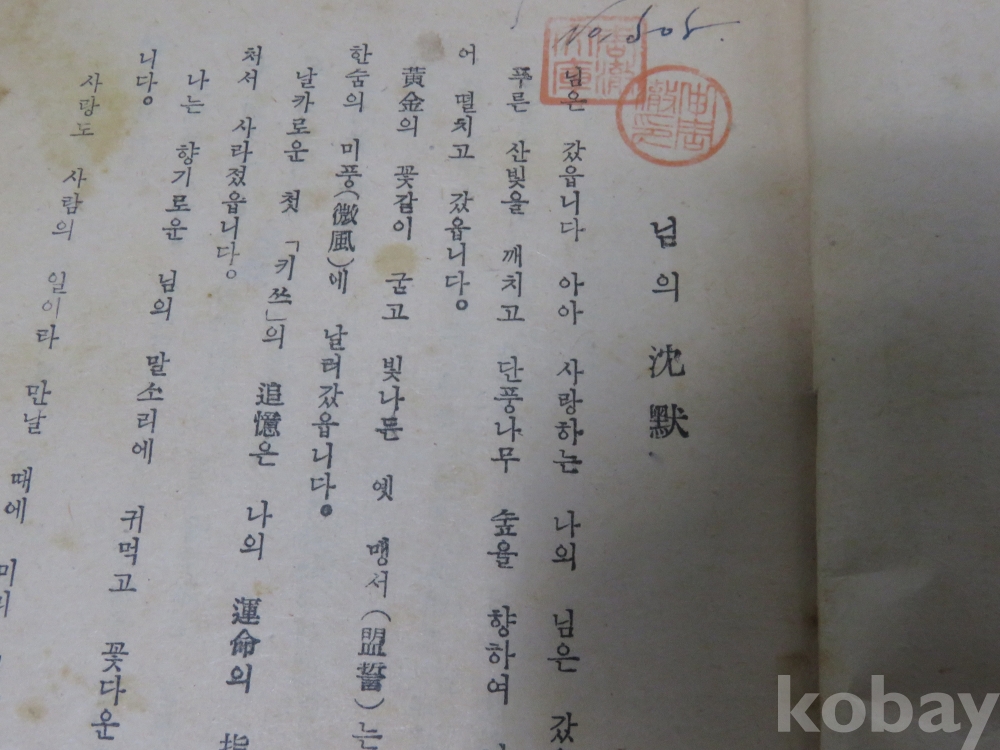 No. 505.
님의 沈默
님은 갔읍니다 아아 사랑하는 나의 님은 갔
푸른 산빛을 깨치고 단풍나무 숲을 향하여
어 떨치고 갔읍니다。
黃金의 꽃같이 굳고 빛나든 옛 맹서(盟誓)는
한숨의 미풍(微風)에 날려갔읍니다。
날카로운 첫 「키쓰」의 追憶은 나의 運命의 指
처서 사라졌읍니다。
나는 향기로운 님의 말소리에 귀먹고 꽃다운
니다。
사랑도 사람의 일이라 만날 때에 미리
kobay